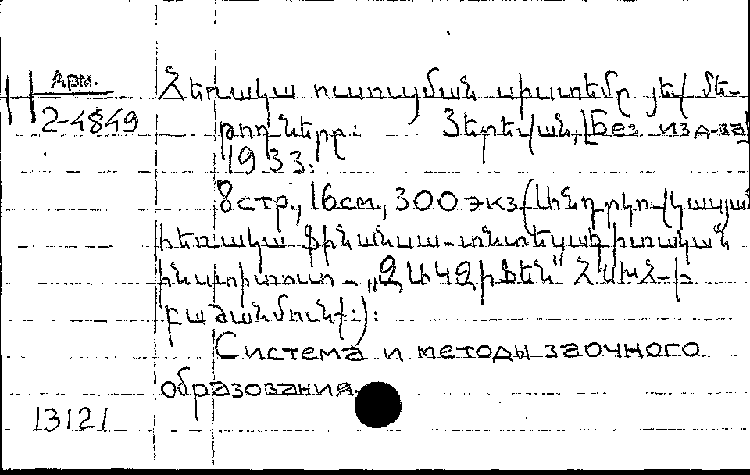 Арм.
2-4849
Հեռակա ուսուցման սիստեմը յեվ մե-
թոդները: Յերեվան, [Без изд-ва]
1933:
8стр., 16см., 300 экз. (Անդրկովկասյան
հեռակա ֆինանսա-տնտեսագիտական
ինստիտուտ - ՀՍԽՀ-ի
բաժանմունք:):
Система и методы заочного
образования.
13121